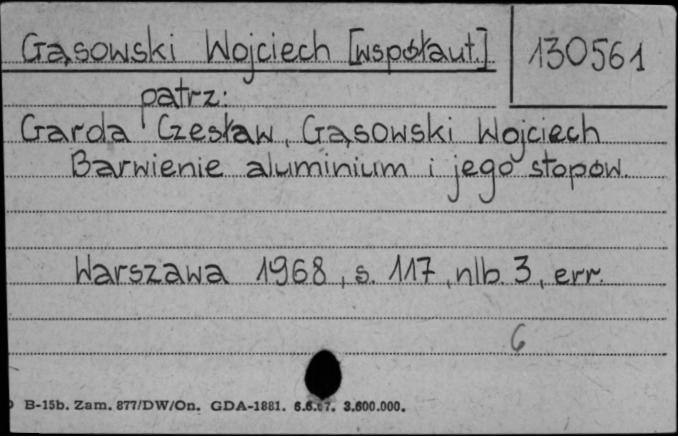 Gąsowski Wojciech [współaut.] 130561
patrz:
Garda Czesław, Gąsowski Wojciech
Barwienie aluminium i jego stopów.
Warszawa 1968, s. 117, nlb. 3, err.
6
B-15b. Zam. 877/DW/On. GDA-1881. 6.6.67. 3.600.000.